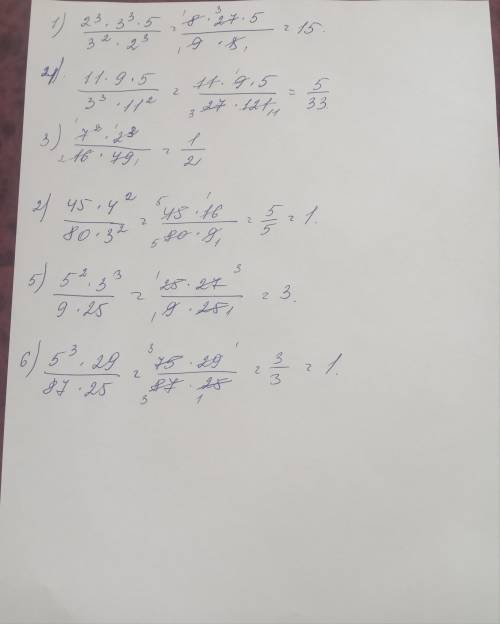 1) (2³ · 3³ · 5)/(3² · 2³) = (8 · 27 · 5)/(9 · 8) = 15.
4) (11 · 9 · 5)/(3³ · 11²) = (11 · 9 · 5)/(27 · 121) = 5/33
3) (7² · 2³)/(16 · 49) = 1/2
2) (45 · 4²)/(80 · 3²) = (45 · 16)/(80 · 9) = 5/5 = 1.
5) (5² · 3³)/(9 · 25) = (25 · 27)/(9 · 25) = 3.
6) (5³ · 29)/(87 · 25) = (75 · 29)/(87 · 25) = 3/3 = 1.